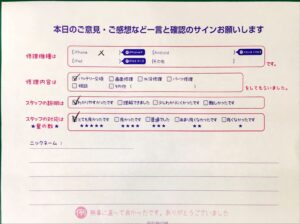 本日のご意見・ご感想など一言と確認のサインお願いします
修理機種は
iPhone X
Android
iPad
その他
です。
修理内容は
バッテリー交換 画面修理 水没修理 パーツ修理
相談 その他（ ）
をしてもらいました。
スタッフの説明は
わかりやすかったです 理解できました 少しわかりにくかったです 難しかったです
スタッフの対応は
★星の数★
とても良かったです 良かったです 普通でした あまり良くなかったです 良くなかったです
★★★★★ ★★★★ ★★★ ★★ ★
ニックネーム：
無事に直って良かったです。ありがとうございました